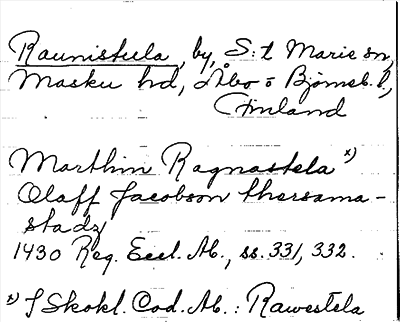 Raunistula, by, S:t Marie sn,
Masku hd, Åbo o Björneb. l.,
Finland
Marthin Ragnastela x)
Olaff Jacobson thersama-
stadz
1430 Reg. Eccl. Ab., ss. 331, 332.
x) I Skokl. Cod. Ab.: Rawestela